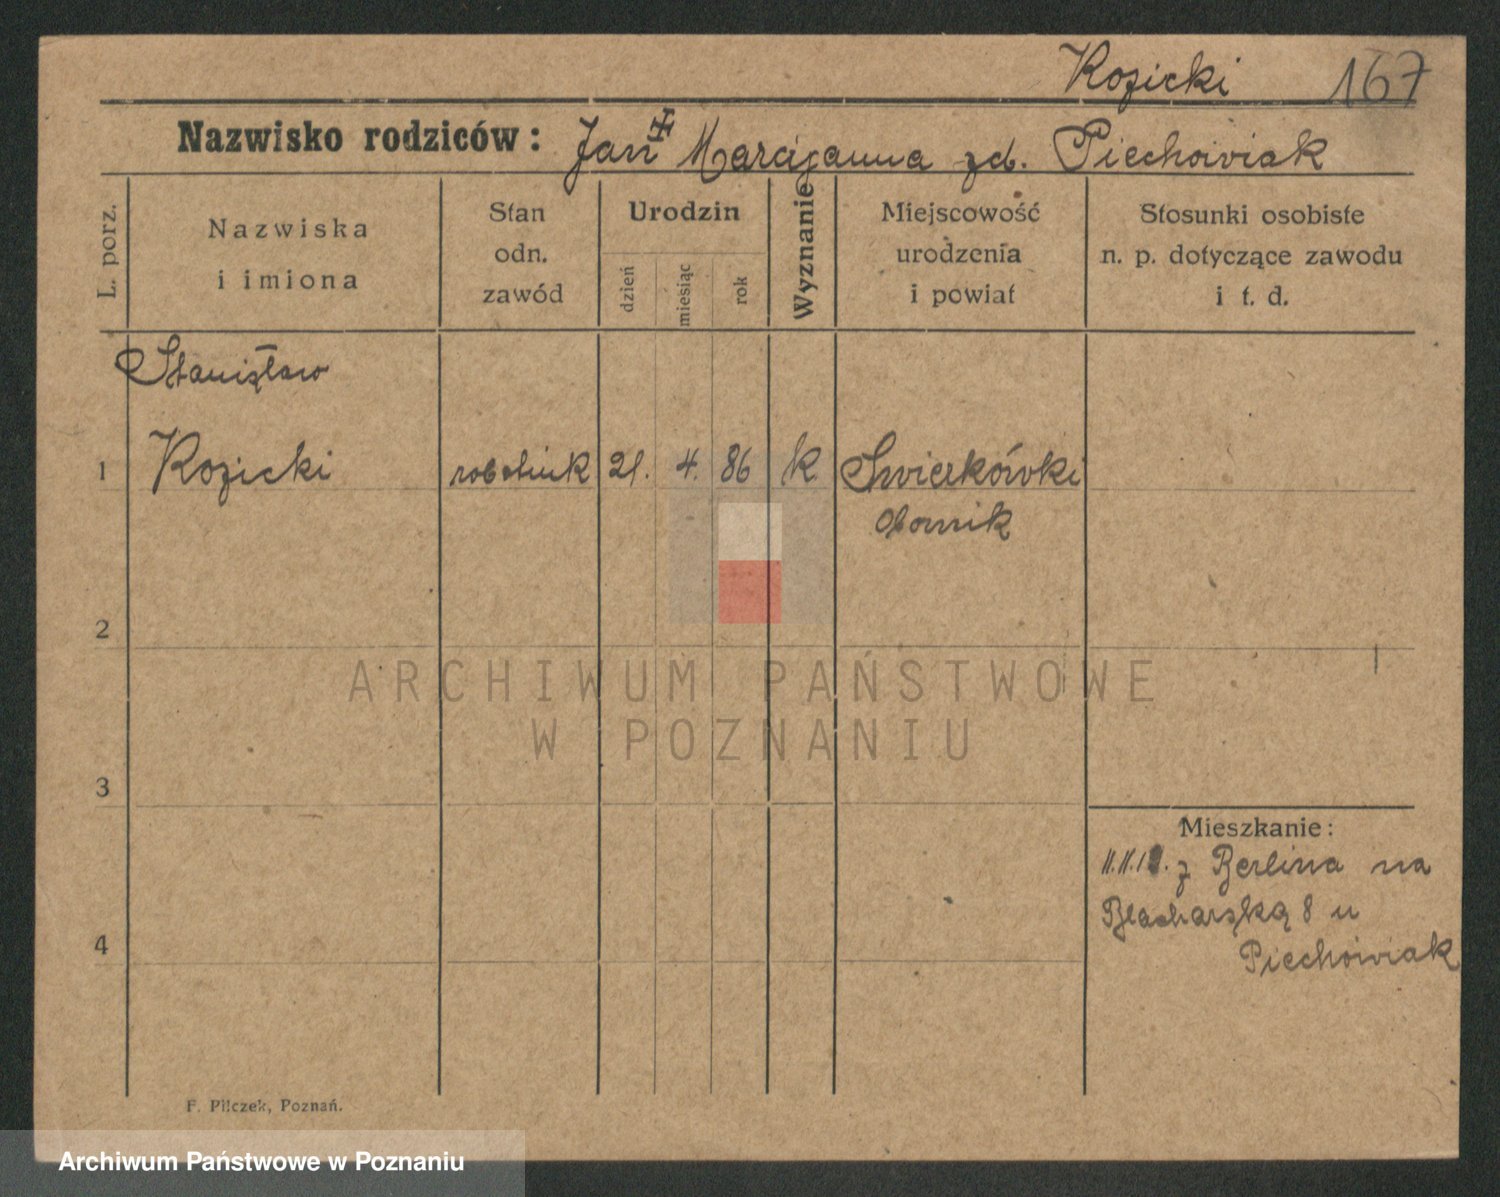 Kozicki 167
Nazwisko rodziców: Jan ‡ Marcijanna zd. Piechowiak
L. porz.
Nazwiska
i imiona
Stan
odn.
zawód
Urodzin
dzień
miesiąc
rok
Wyznanie
Miejscowość
urodzenia
i powiat
Stosunki osobiste
n. p. dotyczące zawodu
i t. d.
Stanisław
1 Kozicki robotnik 21. 4. 86 k Świerkówki
Obornik
2
ARCHIWUM PAŃSTWOWE
W POZNANIU
3
Mieszkanie:
z Berlina na
Blacharską 8 u
Piechowiak
4
F. Pilczek, Poznań.
Archiwum Państwowe w Poznaniu